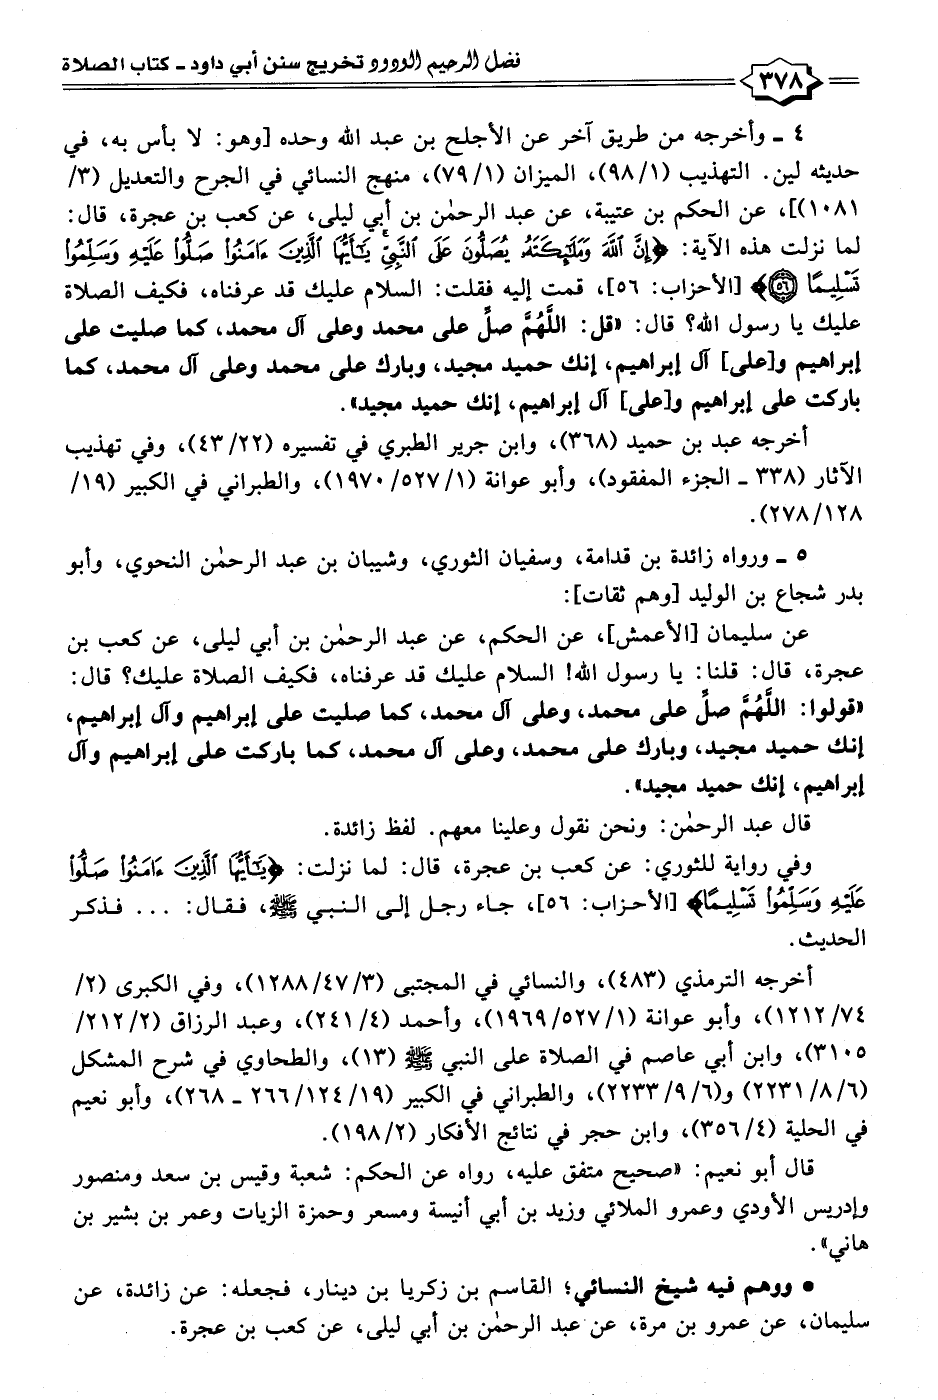 فضل الرحيم الودود تخريج سنن أبي داود - كتاب الصلاة
٣٧٨
٤ - وأخرجه من طريق آخر عن الأجلح بن عبد الله وحده [وهو: لا بأس به، في
حديثه لين. التهذيب (٩٨/١)، الميزان (٧٩/١)، منهج النسائي في الجرح والتعديل (٣/
١٠٨١)]، عن الحكم بن عتيبة، عن عبد الرحمٰن بن أبي ليلى، عن كعب بن عجرة، قال:
لما نزلت هذه الآية: ﴿إِنَّ ٱللَّهَ وَمَلَـٰٓئِكَتَهُۥ يُصَلُّونَ عَلَى ٱلنَّبِيِّ يَـٰٓأَيُّهَا ٱلَّذِينَ ءَامَنُوا۟ صَلُّوا۟ عَلَيْهِ وَسَلِّمُوا۟
تَسْلِيمًا ۝٥٦﴾ [الأحزاب: ٥٦]، قمت إليه فقلت: السلام عليك قد عرفناه، فكيف الصلاة
عليك يا رسول الله؟ قال: «قل: اللَّهُمَّ صلِّ على محمد وعلى آل محمد، كما صليت على
إبراهيم و[على] آل إبراهيم، إنك حميد مجيد، وبارك على محمد وعلى آل محمد، كما
باركت على إبراهيم و[على] آل إبراهيم، إنك حميد مجيد».
أخرجه عبد بن حميد (٣٦٨)، وابن جرير الطبري في تفسيره (٤٣/٢٢)، وفي تهذيب
الآثار (٣٣٨ - الجزء المفقود)، وأبو عوانة (١٩٧٠/٥٢٧/١)، والطبراني في الكبير (١٩/
٢٧٨/١٢٨).
٥ - ورواه زائدة بن قدامة، وسفيان الثوري، وشيبان بن عبد الرحمٰن النحوي، وأبو
بدر شجاع بن الوليد [وهم ثقات]:
عن سليمان [الأعمش]، عن الحكم، عن عبد الرحمٰن بن أبي ليلى، عن كعب بن
عجرة، قال: قلنا: يا رسول الله! السلام عليك قد عرفناه، فكيف الصلاة عليك؟ قال:
«قولوا: اللَّهُمَّ صلِّ على محمد، وعلى آل محمد، كما صليت على إبراهيم وآل إبراهيم،
إنك حميد مجيد، وبارك على محمد، وعلى آل محمد، كما باركت على إبراهيم وآل
إبراهيم، إنك حميد مجيد».
قال عبد الرحمٰن: ونحن نقول وعلينا معهم. لفظ زائدة.
وفي رواية للثوري: عن كعب بن عجرة، قال: لما نزلت: ﴿يَـٰٓأَيُّهَا ٱلَّذِينَ ءَامَنُوا۟ صَلُّوا۟
عَلَيْهِ وَسَلِّمُوا۟ تَسْلِيمًا﴾ [الأحزاب: ٥٦]، جاء رجل إلى النبي ﷺ، فقال: ... فذكر
الحديث.
أخرجه الترمذي (٤٨٣)، والنسائي في المجتبى (١٢٨٨/٤٧/٣)، وفي الكبرى (٢/
١٢١٢/٧٤)، وأبو عوانة (١٩٦٩/٥٢٧/١)، وأحمد (٢٤١/٤)، وعبد الرزاق (٢١٢/٢/
٣١٠٥)، وابن أبي عاصم في الصلاة على النبي ﷺ (١٣)، والطحاوي في شرح المشكل
(٢٢٣١/٨/٦) و(٢٢٣٣/٩/٦)، والطبراني في الكبير (٢٦٦/١٢٤/١٩ - ٢٦٨)، وأبو نعيم
في الحلية (٣٥٦/٤)، وابن حجر في نتائج الأفكار (١٩٨/٢).
قال أبو نعيم: «صحيح متفق عليه، رواه عن الحكم: شعبة وقيس بن سعد ومنصور
وإدريس الأودي وعمرو الملائي وزيد بن أبي أنيسة ومسعر وحمزة الزيات وعمر بن بشير بن
هاني».
• ووهم فيه شيخ النسائي؛ القاسم بن زكريا بن دينار، فجعله: عن زائدة، عن
سليمان، عن عمرو بن مرة، عن عبد الرحمٰن بن أبي ليلى، عن كعب بن عجرة.